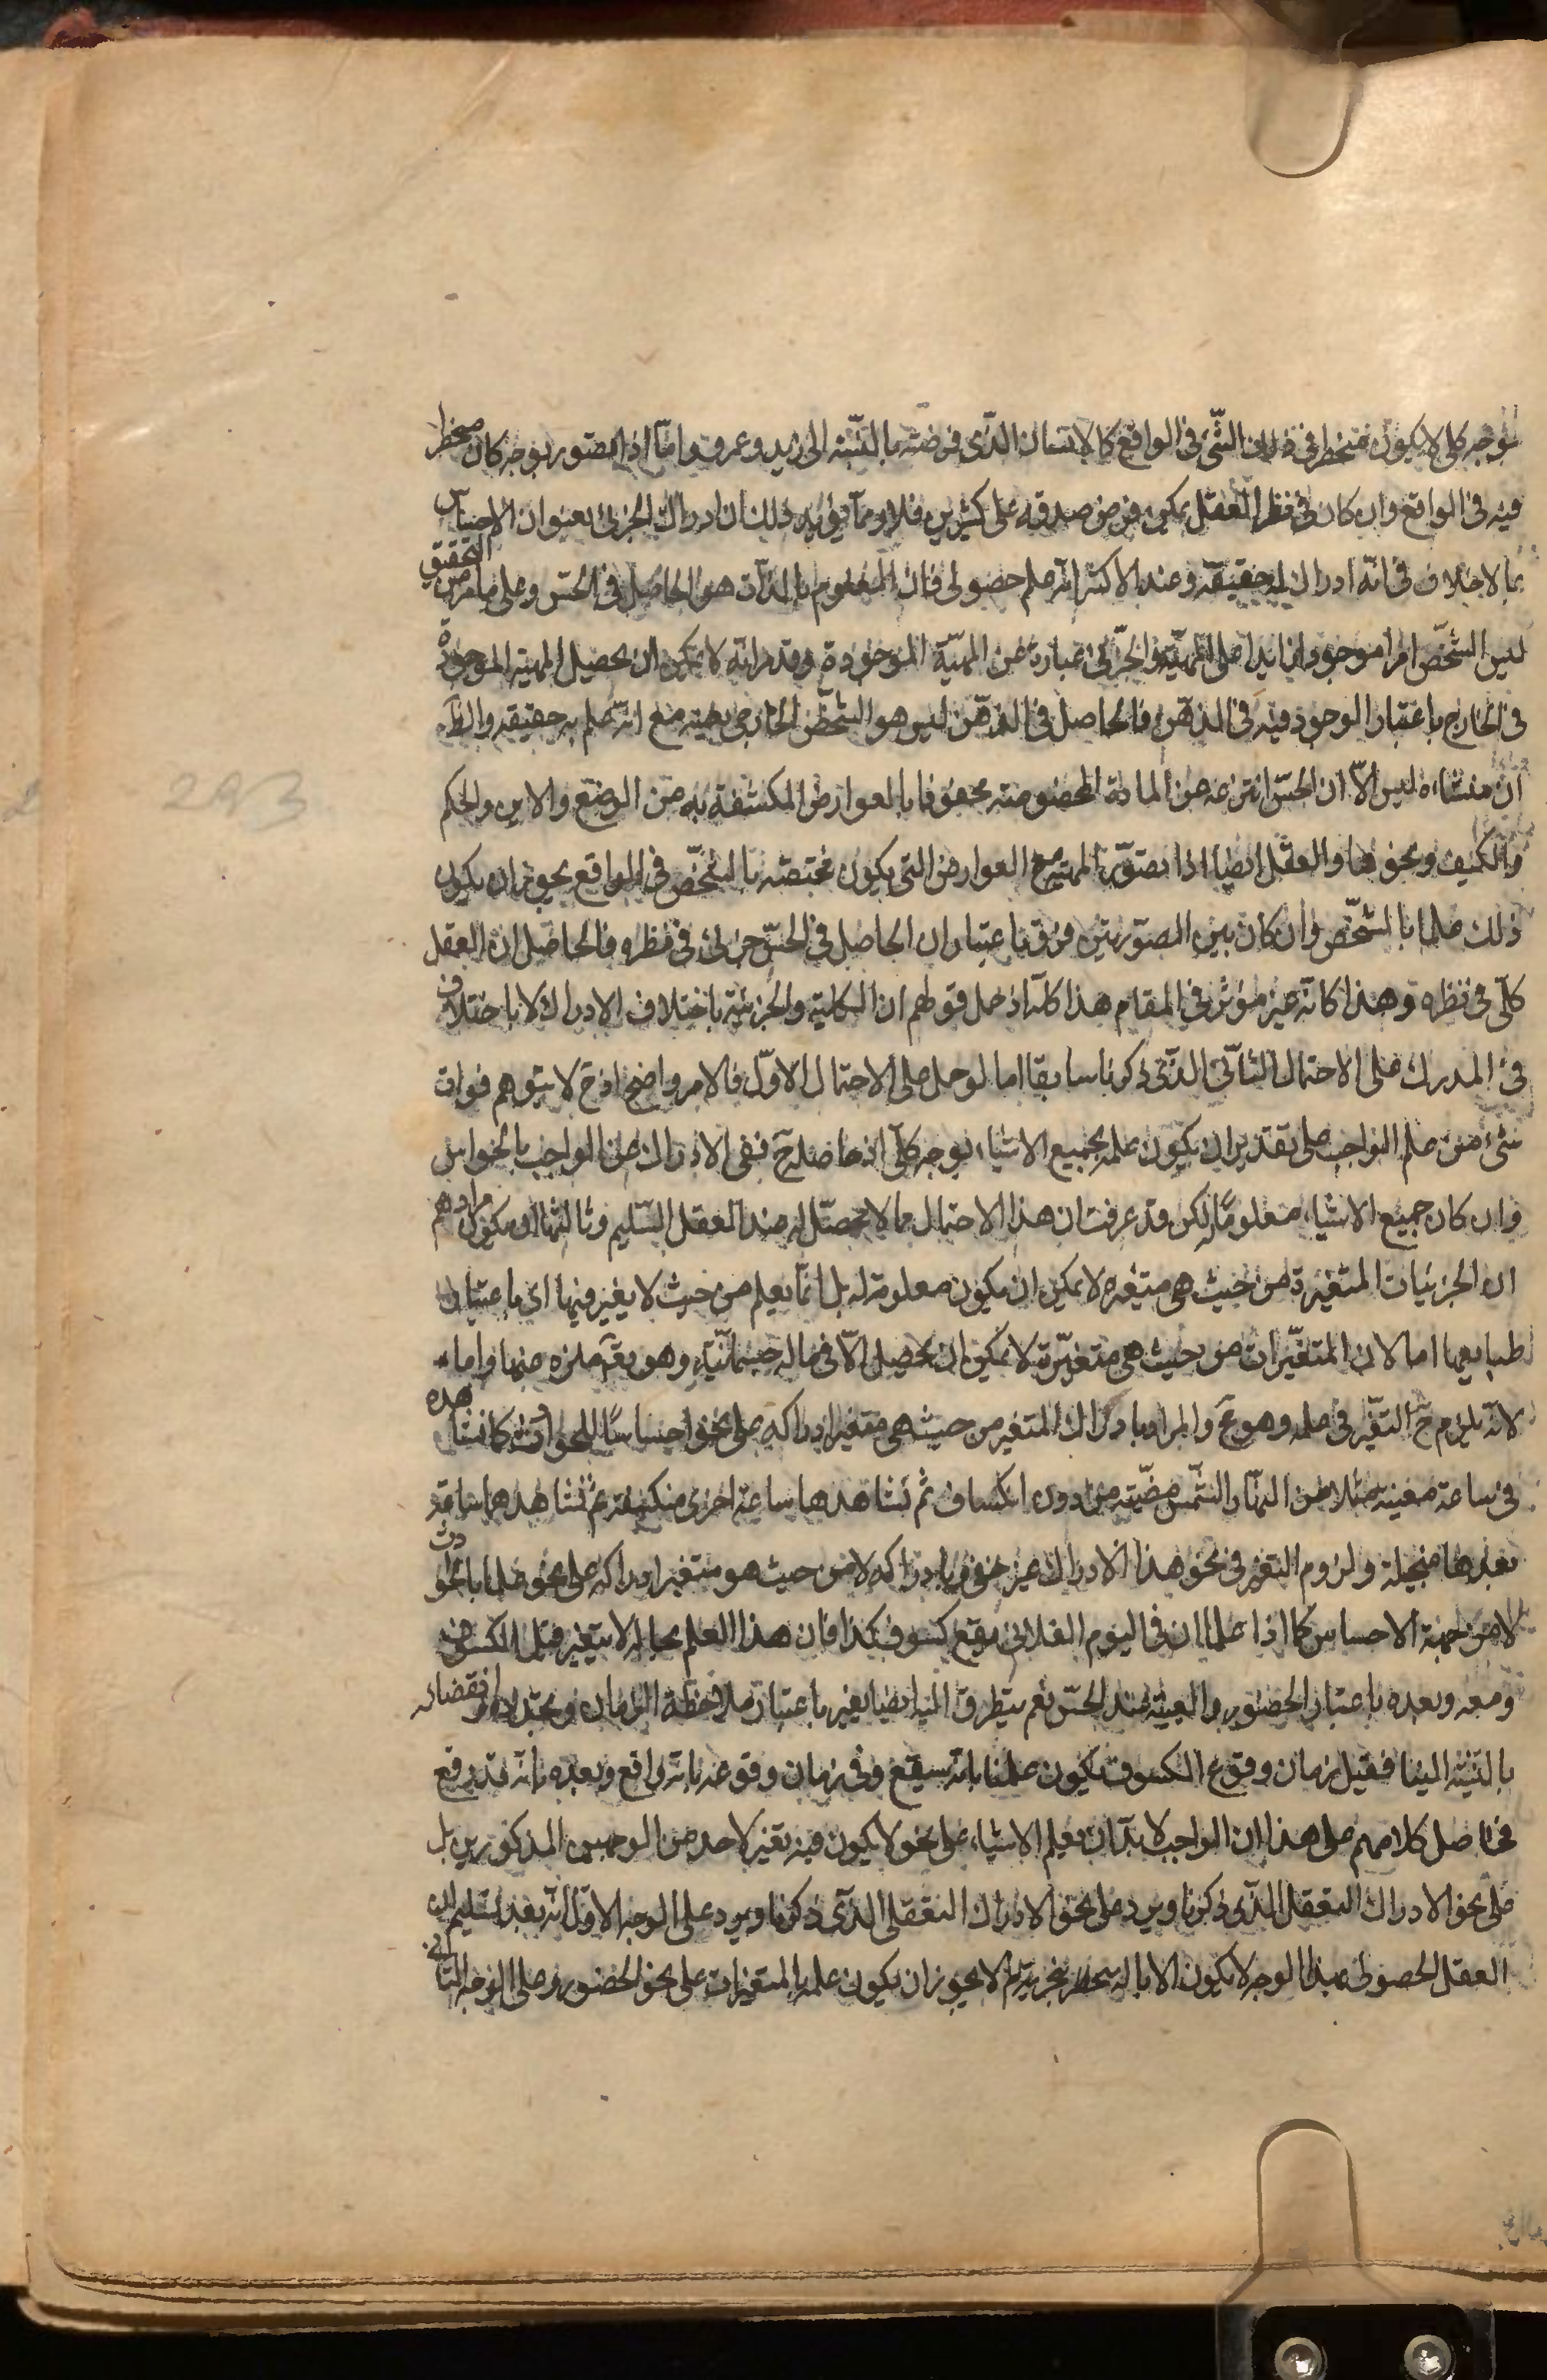 بوجه كلى لا يكون منحصرا فى ذلك الشئ فى الواقع كالانسان الذى فرضته بالنسبة الى زيد وعمرو واما اذا تصور بوجه كان منحصرا
فيه فى الواقع وان كان فى نظر العقل يمكن فرض صدقه على كثيرين فلا ومما يؤيد ذلك ان ادراك الجزئ بعنوان الاحساس
مما لا خلاف فى انه ادراك له حقيقة وعند الاكثر انه علم حصولى فان المعلوم بالذات هو الحاصل فى الحس وعلى ما مر من التحقيق
ليس الشخص امرا موجودا زايدا على المهية والجزئ عبارة عن المهية الموجودة وقد مر انه لا يمكن ان يحصل المهية الموجودة
فى الخارج باعتبار الوجود فيه فى الذهن فالحاصل فى الذهن ليس هو الشخص الخارجى بعينه مع انه علم به حقيقة والظ
ان منشاءه ليس الا ان الحس انتزعه من المادة المخصوصة محفوفا بالعوارض المكتنفة به من الوضع والاين والحكم
والكيف ونحوها والعقل ايضا اذا تصور المهية مع العوارض التى يكون مختصة بالشخص فى الواقع يجوز ان يكون
ذلك علما بالشخص وان كان بين الصورتين فرق باعتبار ان الحاصل فى الحس جزئ فى نظره والحاصل ان العقل
كلى فى نظره وهذا كانه غير مؤثر فى المقام هذا كله اذا حمل قولهم ان الكلية والجزئية باختلاف الادراك لا باختلاف
فى المدرك على الاحتمال الثانى الذى ذكرنا سابقا اما لو حمل على الاحتمال الاول فالامر واضح اذ ح لا يتوهم فوات
شئ من علم الواجب على تقدير ان يكون علمه بجميع الاشياء بوجه كلى اذ حاصله ح نفى الادراك عن الواجب بالحواس
وان كان جميع الاشياء معلوما له لكن قد عرفت ان هذا الاحتمال مما لا محصل له عند العقل السليم وثالثها ان يكون مرادهم
ان الجزئيات المتغيرة من حيث هى متغيره لا يمكن ان يكون معلومة له بل انما يعلم من حيث لا يغير فيها اى باعتبار
طبايعها اما لان المتغيرات من حيث هى متغيرة لا يمكن ان يحصل الا فى ما له جسمانية وهو تعم منزه عنها واما
لانه يلزم ح التغير فى علمه وهو مح والمراد بادراك المتغير من حيث هى متغير ادراكه على نحو احساسنا للحوادث كما نشاهد
فى ساعة معينة مثلا من النهار الشمس مضيئة من دون انكساف ثم نشاهدها ساعة اخرى منكسفة ثم نشاهدها ساعة
بعدها منجلية ولزوم التغير فى نحو هذا الادراك غير خفى وبادراكه لا من حيث هو متغير ادراكه على نحو علمنا بالحوادث
لا من جهة الاحساس كما اذا علمنا ان فى اليوم الفلانى يقع كسوف كذا فان هذا العلم بحاله لا يتغير قبل الكسوف
ومعه وبعده باعتبار الحضور والغيبة عند الحس نعم يتطرق اليه ايضا تغير باعتبار ملاحظة الزمان وتجدده وانقضائه
بالنسبة الينا فقبل زمان وقوع الكسوف يكون علمنا بانه سيقع وفى زمان وقوعه بانه واقع وبعده بانه قد وقع
فحاصل كلامهم على هذا ان الواجب لا بد ان يعلم الاشياء على نحو لا يكون فيه تغير لاحد من الوجهين المذكورين بل
على نحو الادراك التعقل الذى ذكرنا ويرد على نحو الادراك التعقلى الذى ذكرنا ويرد على الوجه الاول انه بعد تسليم ان
العقل الحصولى بهذا الوجه لا يكون الا بالة لم لا يجوز ان يكون علمه بالمتغيرات على نحو الحضور وعلى الوجه الثانى
293